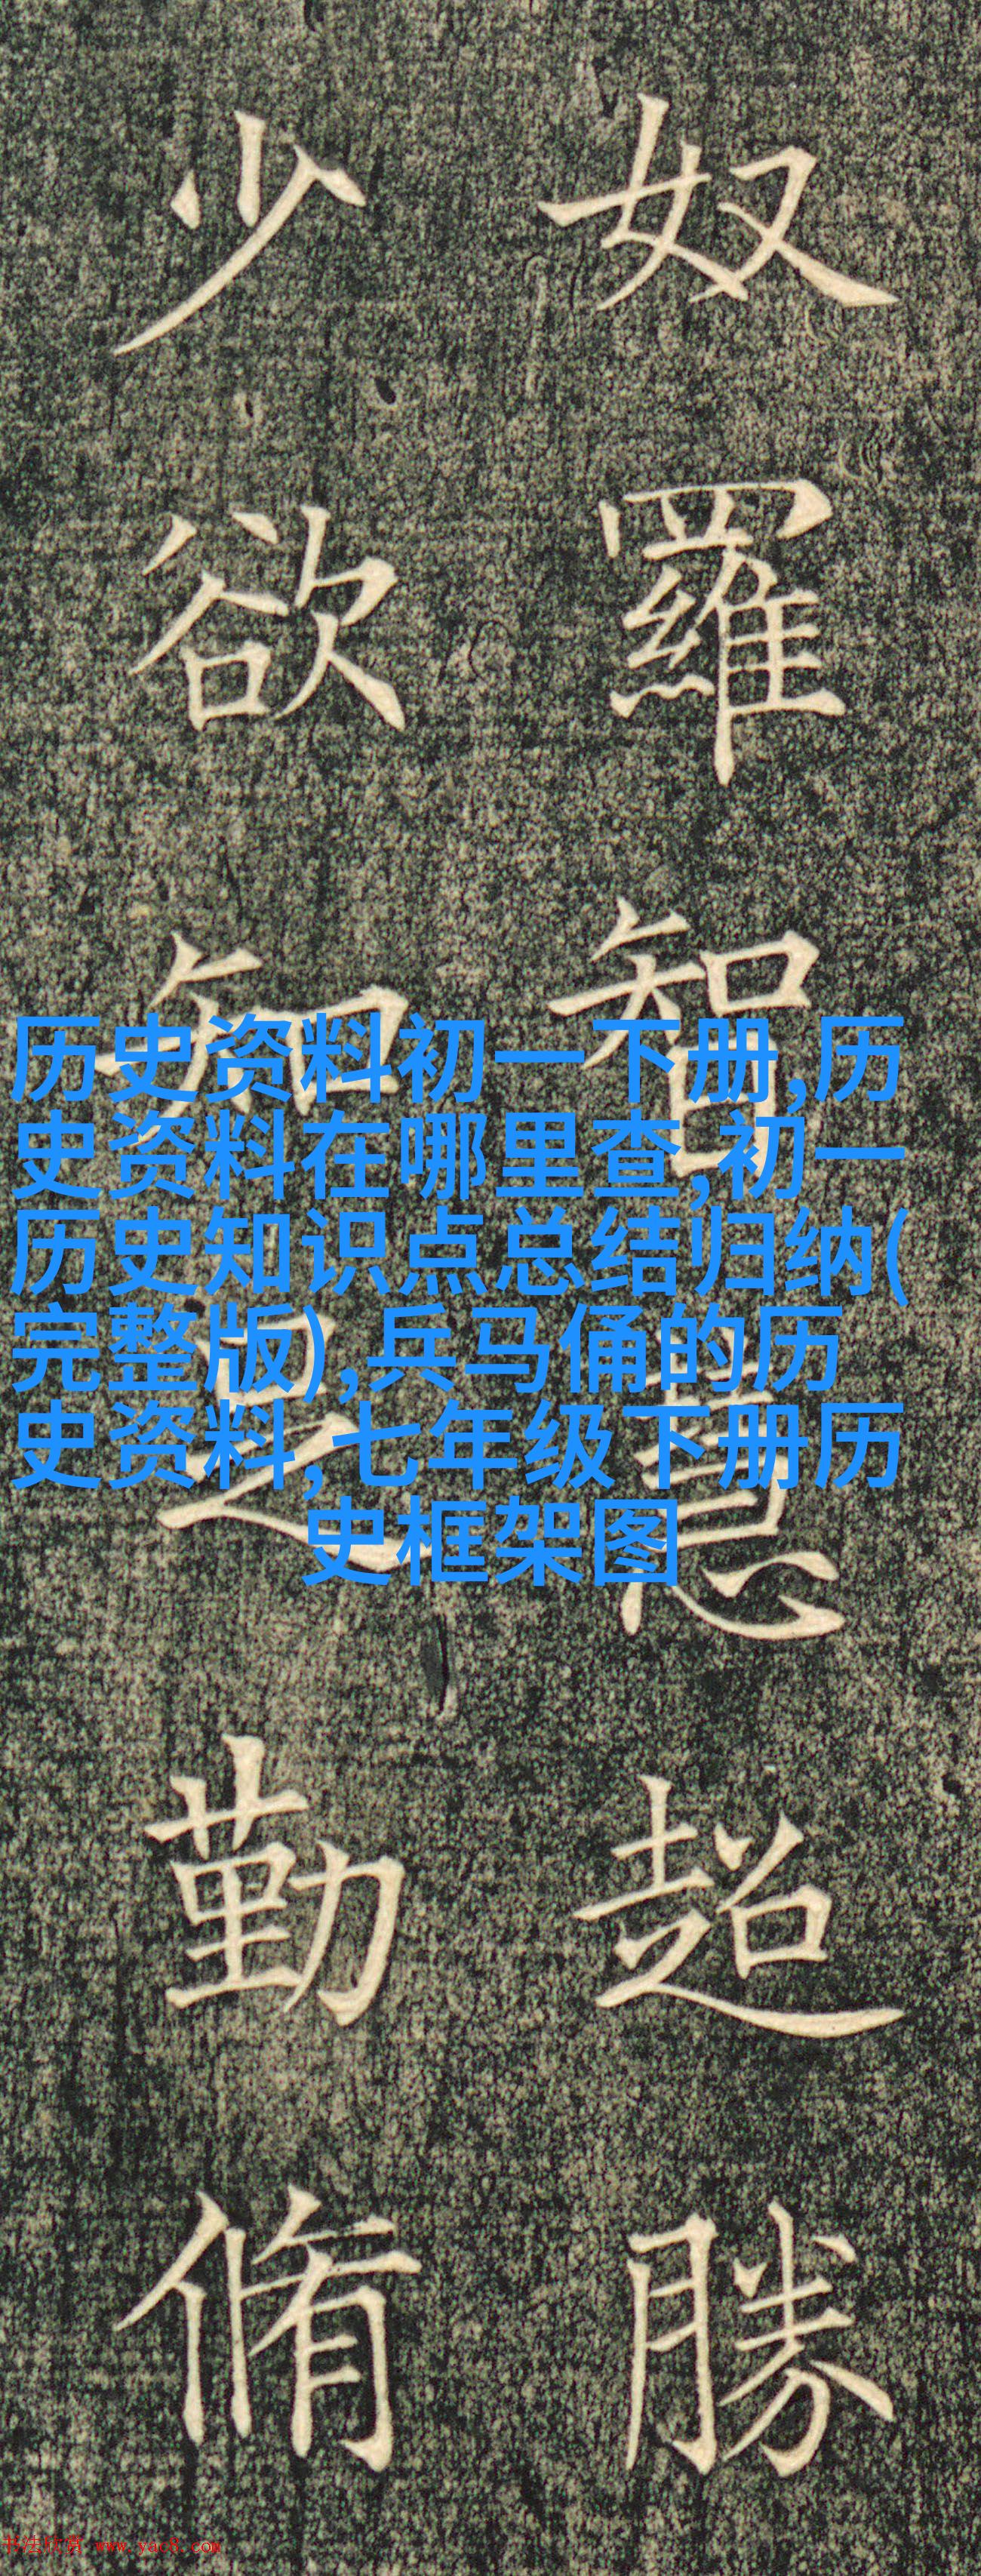 奴羅智慧超勝
少欲知足勤脩
历史资料初一下册,历
史资料在哪里查,初一
历史知识点总结归纳(
完整版),兵马俑的历
史资料,七年级下册历
史框架图
书法欣赏 www.yac8.com